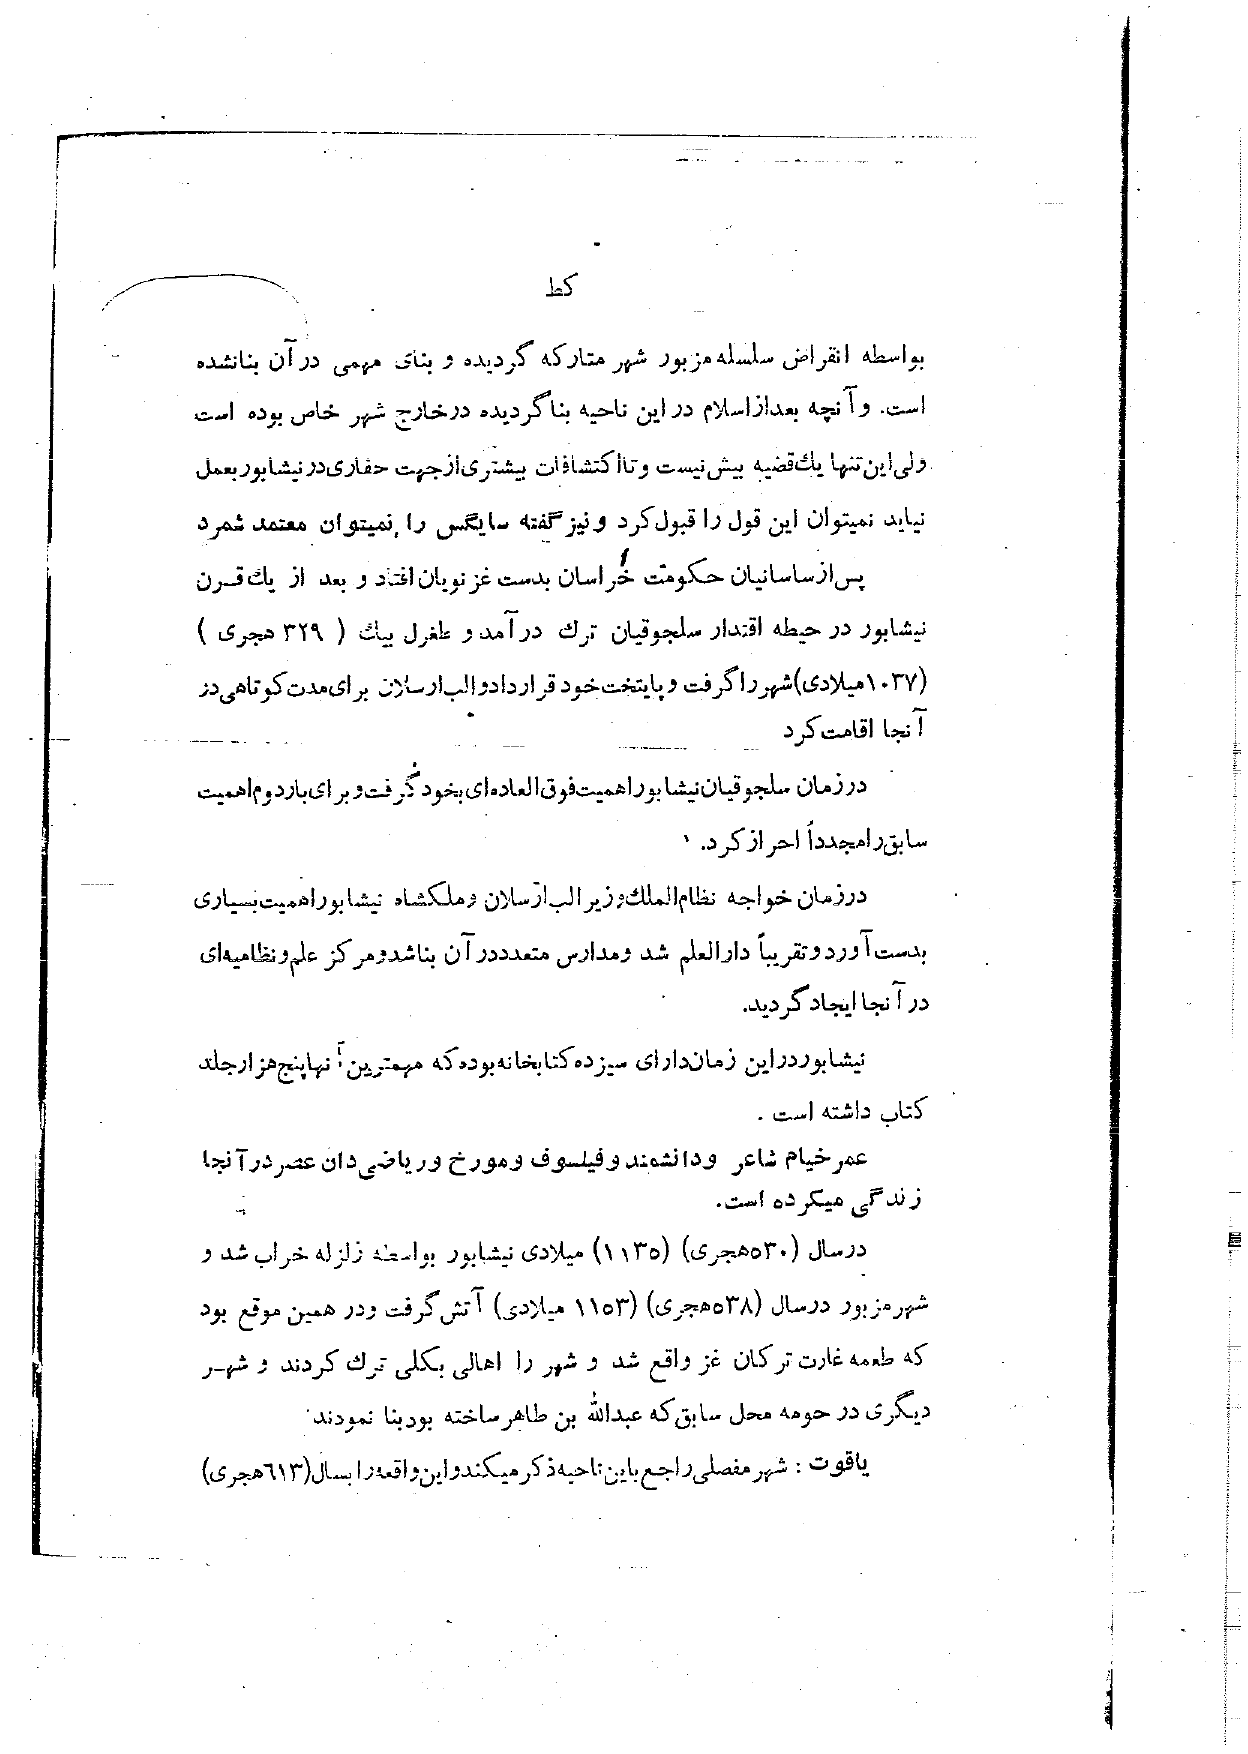 کط
بواسطه انقراض سلسله مزبور شهر متارکه گردیده و بنای مهمی در آن بنانشده
است. و آنچه بعد از اسلام در این ناحیه بنا گردیده در خارج شهر خاص بوده است
ولی این تنها یك قضیه بیش نیست و تا اکتشافات بیشتری از جهت حفاری در نیشابور بعمل
نیاید نمیتوان این قول را قبول کرد و نیز گفته سایکس را نمیتوان معتمد شمرد
پس از ساسانیان حکومت خراسان بدست غزنویان افتاد و بعد از یك قرن
نیشابور در حیطه اقتدار سلجوقیان ترك در آمد و طغرل بیك ( ۳۲۹ هجری )
(۱۰۳۷میلادی) شهر را گرفت و پایتخت خود قرار داد و الب ارسلان برای مدت کوتاهی در
آنجا اقامت کرد
در زمان سلجوقیان نیشابور اهمیت فوق العاده ای بخود گرفت و برای بار دوم اهمیت
سابق را مجدداً احراز کرد.
در زمان خواجه نظام الملك وزیر الب ارسلان و ملکشاه نیشابور اهمیت بسیاری
بدست آورد و تقریباً دارالعلم شد و مدارس متعدد در آن بنا شد و مرکز علم و نظامیه ای
در آنجا ایجاد گردید.
نیشابور در این زمان دارای سیزده کتابخانه بوده که مهمترین آنها پنج هزار جلد
کتاب داشته است .
عمر خیام شاعر و دانشمند و فیلسوف و مورخ و ریاضی دان عصر در آنجا
زندگی میکرده است.
در سال (۵۳۰هجری) (۱۱۳۵) میلادی نیشابور بواسطه زلزله خراب شد و
شهر مزبور در سال (۵۳۸هجری) (۱۱۵۳ میلادی) آتش گرفت و در همین موقع بود
که طعمه غارت ترکان غز واقع شد و شهر را اهالی بکلی ترك کردند و شهر
دیگری در حومه محل سابق که عبدالله بن طاهر ساخته بود بنا نمودند
یاقوت : شهر مفصلی راجع باین ناحیه ذکر میکند و این واقعه را بسال (۶۱۳هجری)